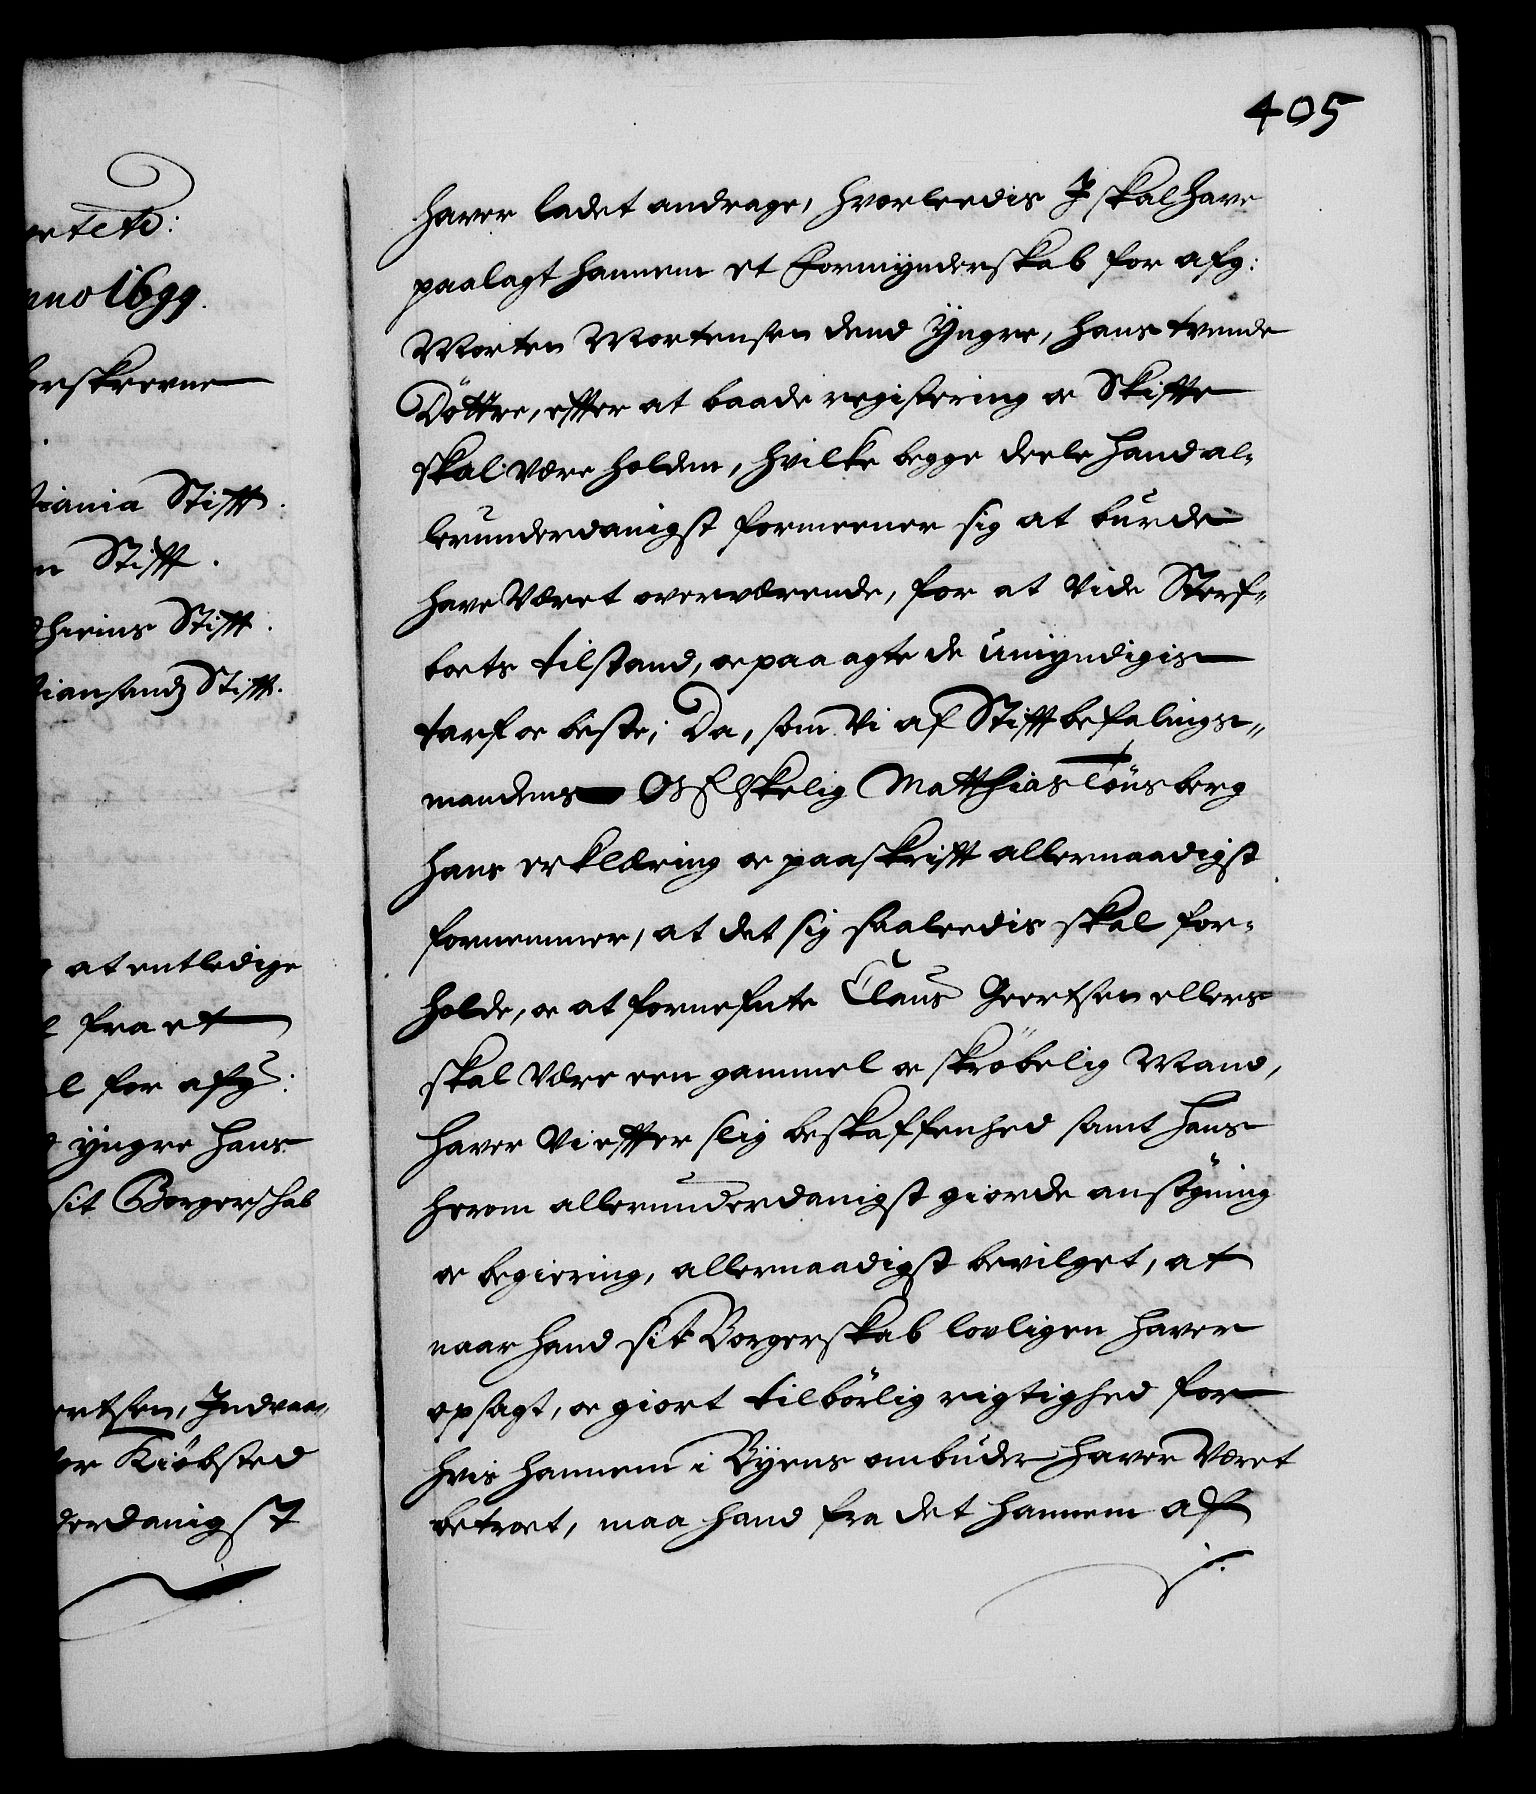 405
etctc:
nno 1699.
forskrevne
tiania Stifft.
n Stifft.
dhiems Stifft.
tiansands Stifft.
at entledige
fra et
l for afg:
yngre hans
sit Borgerschab
ertsen, Indvaa-
er Kiøbsted
derdanigst
haver ladet andrage, hvorleedis I skal have
paalagt hannem et Formynderskab for afg:
Morten Mortensen dend Yngre, hans tvende
Döttre, effter at baade registering oc Skiffte
skal være holden, hvilke begge deele hand al-
lerunderdanigst formeener sig at burde
have Været overværende, for at Vide Sterf-
boets tilstand, oc paa agte de umyndigis
tarf oc beste; Da, som Vi af Stifftbefalings-
mandens Os Elskelig Matthias Tönsberg
hans erklæring oc paaskrifft allernaadigst
fornemmer, at det sig saaleedis skal for-
holde, oc at fornefnte Claus Geertsen ellers
skal Være een gammel oc skröbelig Mand,
haver Vi effter slig beskaffenhed samt hans
herom allerunderdanigst giorde ansögning
oc begiering, allernaadigst bevilget, at
naar hand sit Borgerskab lovligen haver
opsagt, oc giort tilbörlig rigtighed for
hvis hannem i Byens ombuder haver Været
betroet, maa hand fra det hannem af